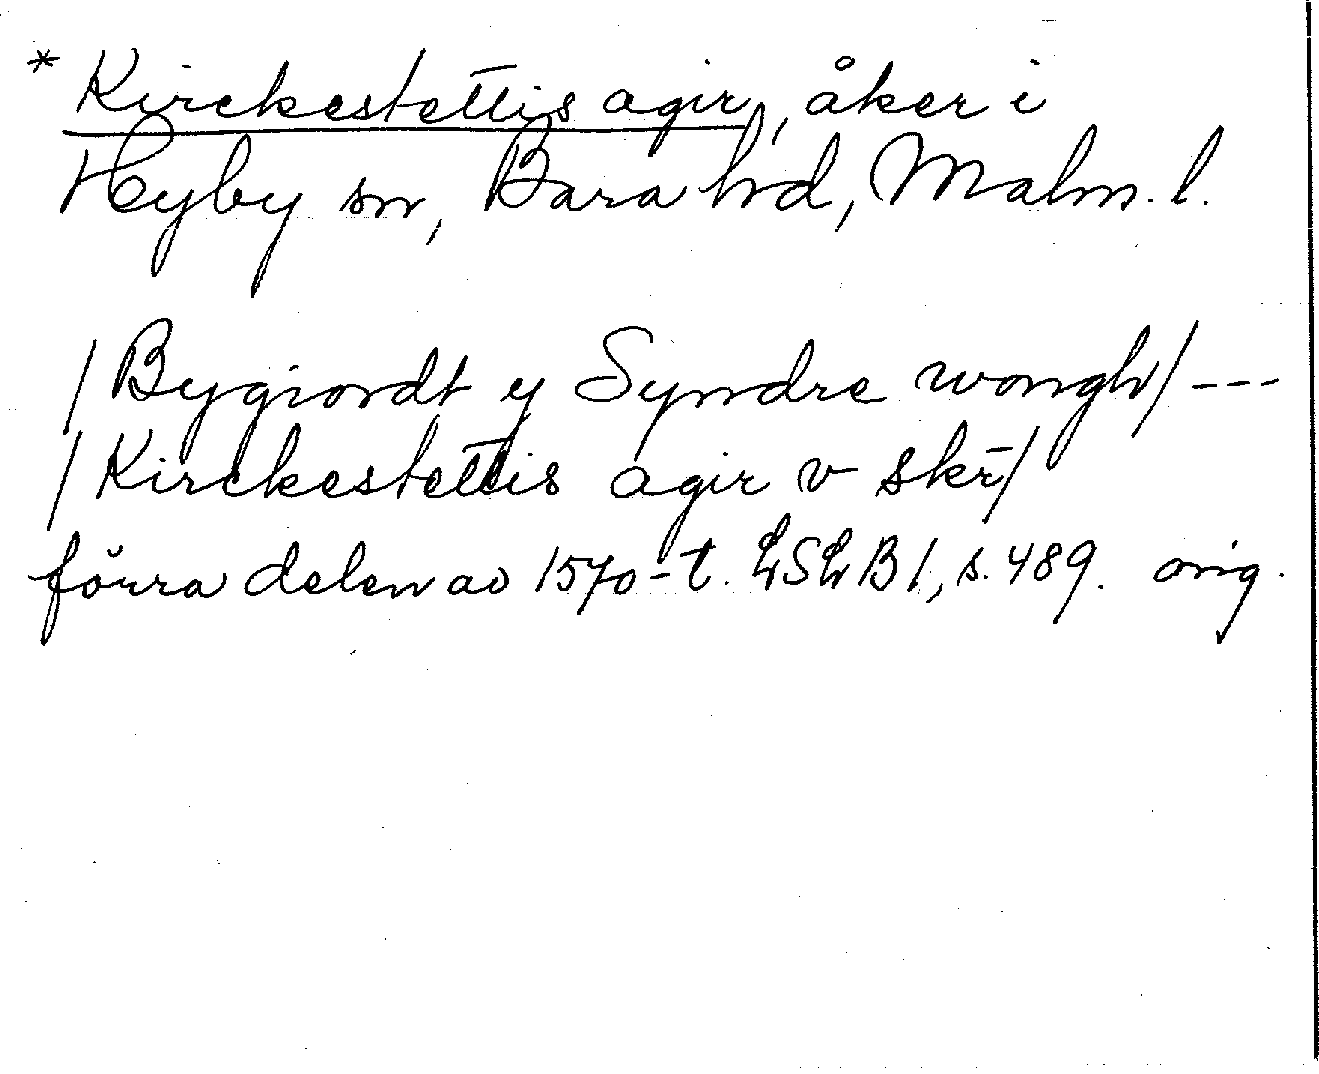 * Kirckestettis agir, åker i
Hyby sn, Bara hd, Malm. l.
/Bygiordt y Syndre wongh/ ---
/Kirckestettis agir v skr̄/
förra delen av 1570-t. LSLB1, s. 489. orig.